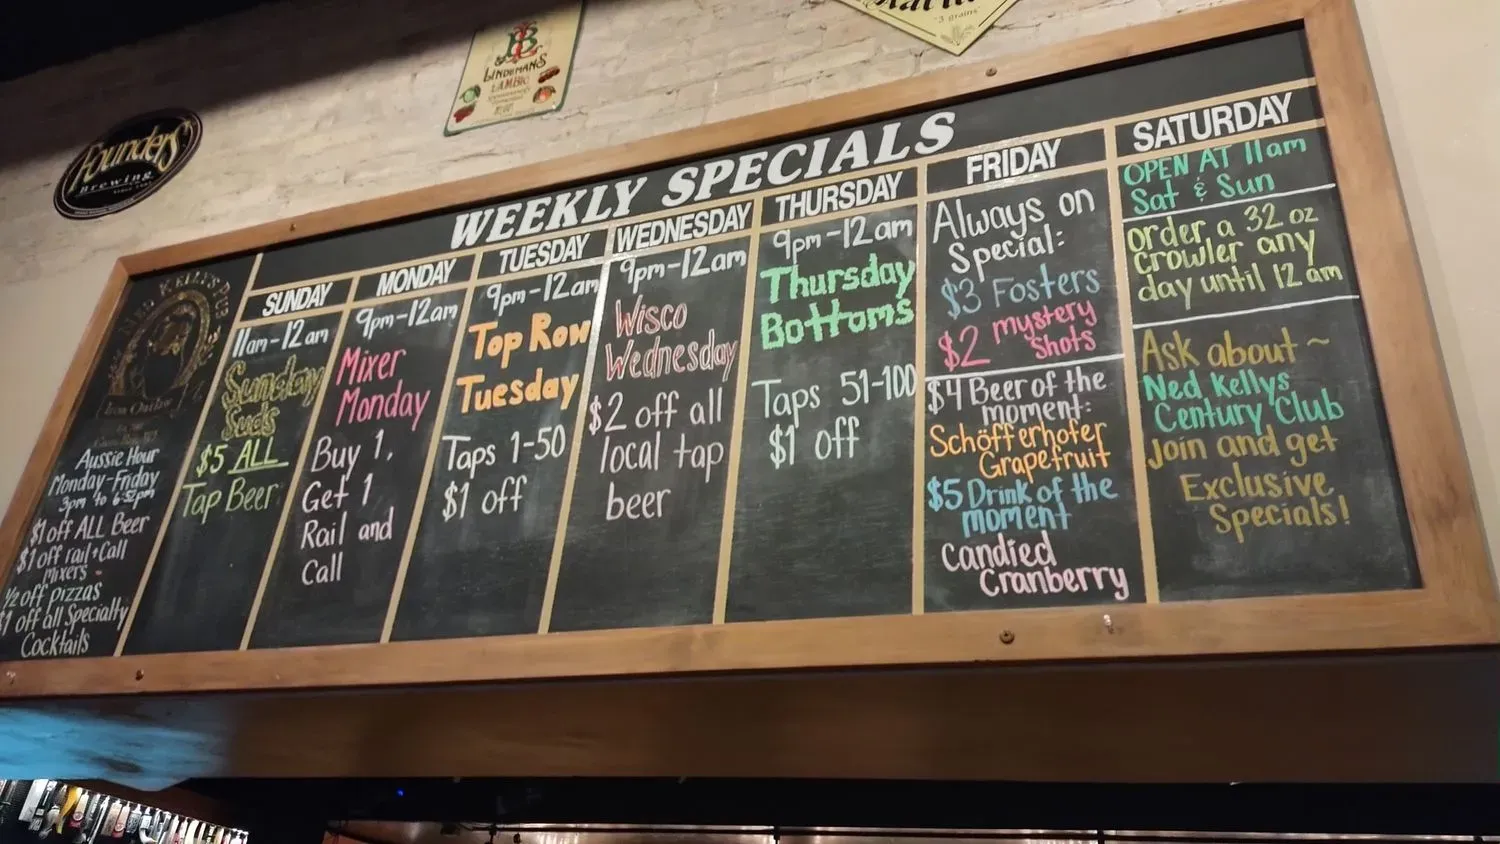 Founders
Brewing
LINDEMANS
LAMBIC
3 grains
WEEKLY SPECIALS
NED KELLY'S PUB
Iron Outlaw
Aussie Hour
Monday-Friday
3pm to 6:52pm
$1 off ALL Beer
$1 off rail + Call
Mixers
1/2 off pizzas
$1 off all Specialty
Cocktails
SUNDAY
11am-12am
Sunday
Suds
$5 ALL
Tap Beer
MONDAY
9pm-12am
Mixer
Monday
Buy 1,
Get 1
Rail and
Call
TUESDAY
9pm-12am
Top Row
Tuesday
Taps 1-50
$1 off
WEDNESDAY
9pm-12am
Wisco
Wednesday
$2 off all
local tap
beer
THURSDAY
9pm-12am
Thursday
Bottoms
Taps 51-100
$1 off
FRIDAY
Always on
Special:
$3 Fosters
$2 mystery
shots
$4 Beer of the
moment:
Schöfferhofer
Grapefruit
$5 Drink of the
moment
Candied
Cranberry
SATURDAY
OPEN AT 11am
Sat & Sun
order a 32 oz
crowler any
day until 12am
Ask about ~
Ned Kellys
Century Club
Join and get
Exclusive
Specials!